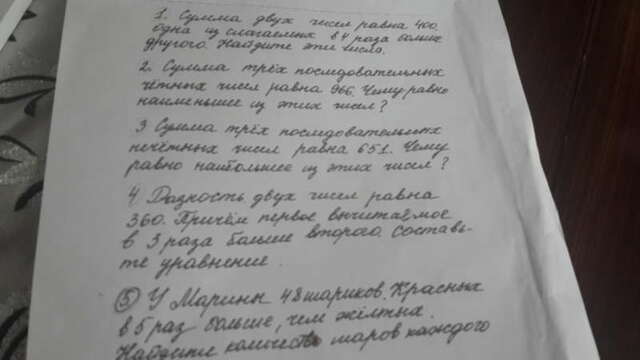 1. Сумма двух чисел равна 400,
одна из слагаемых в 4 раза больше
другого. Найдите эти числа.
2. Сумма трёх последовательных
чётных чисел равна 966. Чему равно
наименьшее из этих чисел?
3 Сумма трёх последовательных
нечётных чисел равна 651. Чему
равно наибольшее из этих чисел?
4. Разность двух чисел равна
360. Причём первое вычитаемое
в 3 раза больше второго. Составь-
те уравнение.
5) У Марины 48 шариков. Красных
в 5 раз больше, чем жёлтых.
Найдите количеств шаров каждого